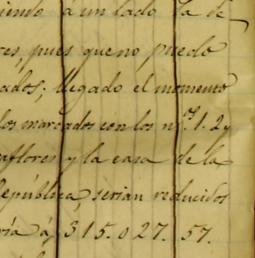 iendo á un lado la de
res, pues que no puedo
ados; llegado el momento
los marcados con los n.os 1.2 y
aflores y la casa de la
República, serian reducidos
ría á, 315.027.57.